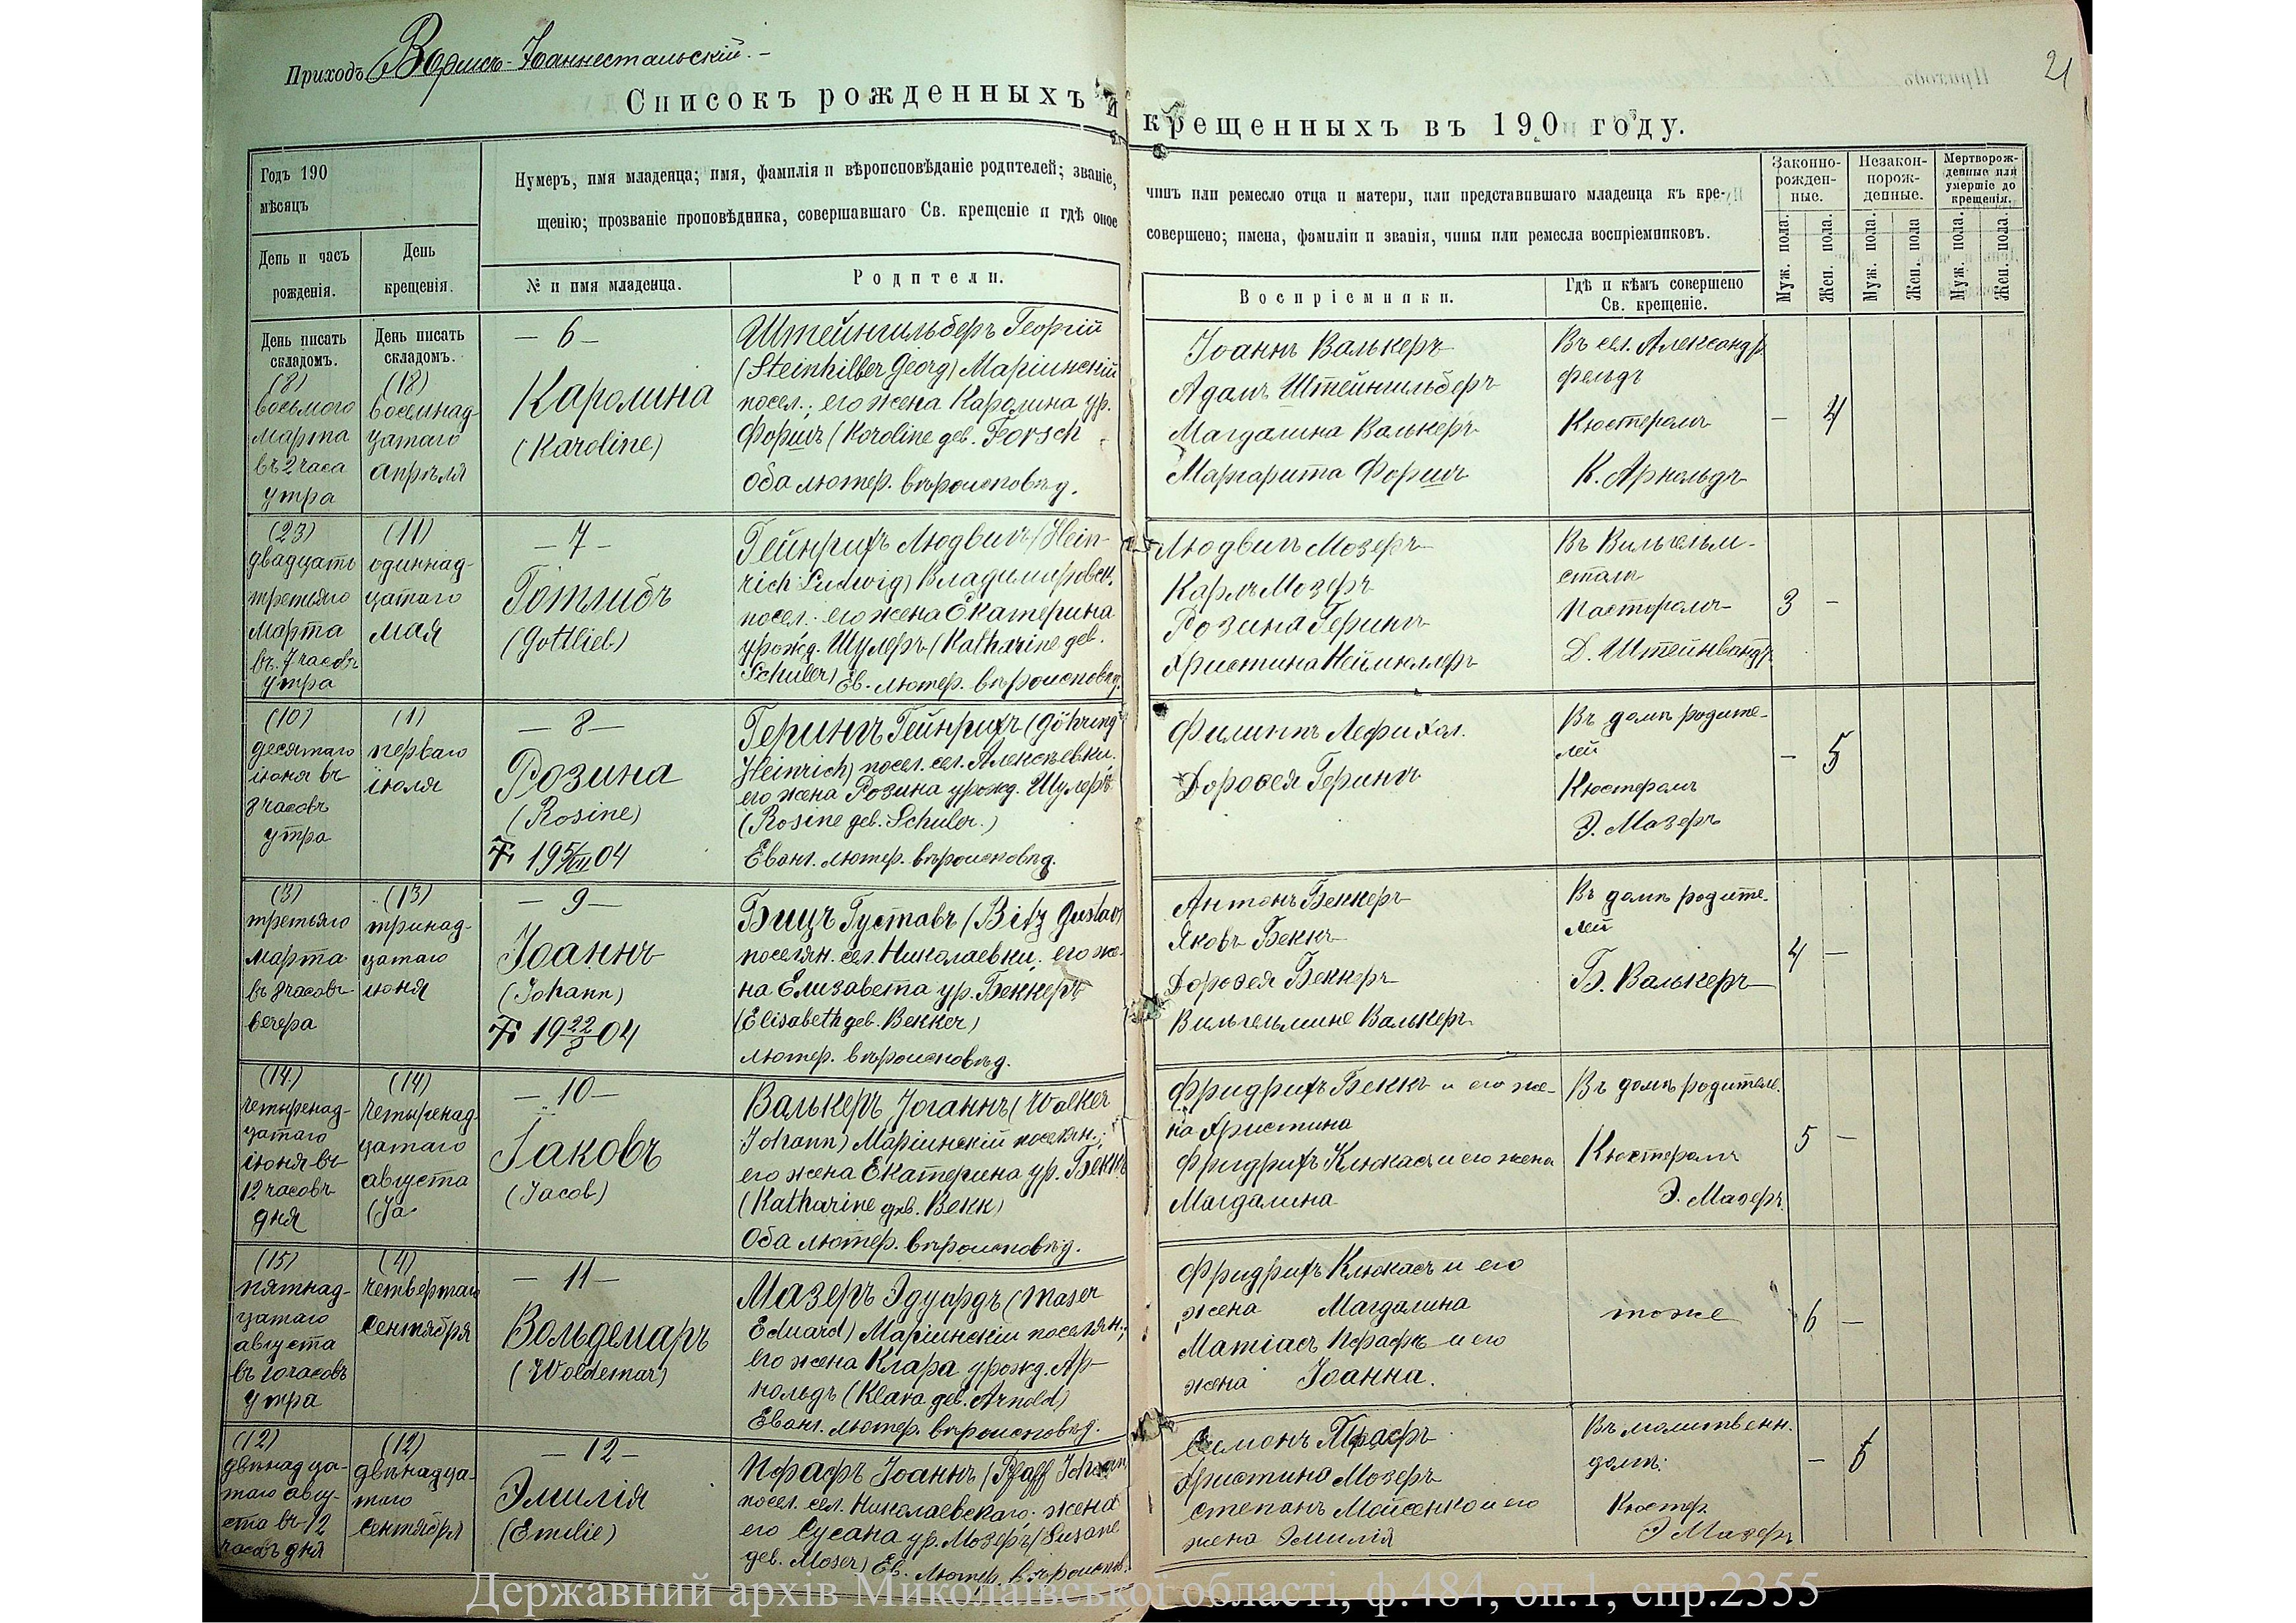 Приходъ Вормсъ-Іоаннестальскій. –
21
Списокъ рожденныхъ и крещенныхъ въ 190 году.
Годъ 190
мѣсяцъ
Нумеръ, имя младенца; имя, фамилія и вѣроисповѣданіе родителей; званіе, чинъ или ремесло отца и матери, или представившаго младенца къ кре-
щенію; прозваніе проповѣдника, совершавшаго Св. крещеніе и гдѣ оное совершено; имена, фамиліи и званія, чины или ремесла воспріемниковъ.
Законно-
рожден-
ные.
Незакон-
норож-
денные.
Мертворож-
денные или
умершіе до
крещенія.
День и часъ
рожденія.
День
крещенія.
№ и имя младенца.
Родители.
Воспріемники.
Гдѣ и кѣмъ совершено
Св. крещеніе.
Муж. пола.
Жен. пола.
Муж. пола.
Жен. пола
Муж. пола.
Жен. пола.
День писать
складомъ.
День писать
складомъ.
(8)
восьмого
марта
въ 2 часа
утра
(18)
восемнад-
цатаго
апрѣля
– 6 –
Каролина
(Karoline)
Штейнгильберъ Георгій
(Steinhilber Georg) Маріинскій
посел.; его жена Каролина ур.
Форшъ (Karoline geb. Forsch
Оба лютер. вѣроисповѣд.
Іоаннъ Валькеръ
Адамъ Штейнгильберъ
Магдалина Валькеръ
Маргарита Форшъ
Въ сел. Александр.
фельдъ
Кюстеромъ
К. Арнольдъ
– 4
(23)
двадцать
третьяго
марта
въ 7 часовъ
утра
(11)
одиннад-
цатаго
мая
– 7 –
Готлибъ
(Gottlieb)
Гейнрихъ Людвигъ (Hein-
rich Ludwig) Владимировск.
посел.: его жена Екатерина
урожд. Шулеръ (Katharine geb.
Schuler) Ев. лютер. вѣроисповѣд.
Людвигъ Мозеръ
Карлъ Мозеръ
Розина Герингъ
Христина Неймиллеръ
Въ Вильгельм-
сталъ
Пасторомъ
Д. Штейнвандъ
3 –
(10)
десятаго
іюня въ
8 часовъ
утра
(1)
перваго
іюля
– 8 –
Розина
(Rosine)
Герингъ Гейнрихъ (Göhring
Heinrich) посел. сел. Алексѣевки.
его жена Розина урожд. Шулеръ
(Rosine geb. Schuler.)
Еванг. лютер. вѣроисповѣд.
Доровея Герингъ
Въ домѣ родите-
лей
Кюстеромъ
Э. Мазеръ
– 5
(3)
третьяго
марта
въ 8 часовъ
вечера
(13)
тринад-
цатаго
іюня
– 9 –
Іоаннъ
(Johann)
† 19 22/8 04
Бицъ Густавъ (Bitz Gustav)
поселян. сел. Николаевки, его же-
на Елизавета ур. Беккеръ
(Elisabeth geb. Bekker)
лютер. вѣроисповѣд.
Антонъ Беккеръ
Яковъ Беккъ
Доровея Беккеръ
Вильгельмине Валькеръ
Въ домѣ родите-
лей
Б. Валькеръ
4 –
(14.)
четыренад-
цатаго
іюня въ
12 часовъ
дня
(14)
четыренад-
цатаго
августа
(Ja
– 10 –
Іаковъ
(Jacob)
Валькеръ Іоганнъ (Walker
Johann) Маріинскій поселян.;
его жена Екатерина ур. Беккъ
(Katharine geb. Bekk)
Оба лютер. вѣроисповѣд.
Фридрихъ Беккъ и его же-
на Христина
Фридрихъ Клюкасъ и его жена
Магдалина
Въ домѣ родителе.
Кюстеромъ
Э. Мазеръ.
5 –
(15)
пятнад-
цатаго
августа
въ 10 часовъ
утра
(4)
четвертаго
сентября
– 11 –
Вольдемаръ
(Woldemar)
Мазеръ Эдуардъ (Maser
Eduard) Маріинскій поселян.;
его жена Клара урожд. Ар-
нольдъ (Klara geb. Arnold)
Еванг. лютер. вѣроисповѣд.
Фридрихъ Клюкасъ и его
жена Магдалина
Матіасъ Пфафъ и его
жена Іоанна.
тоже
6 –
(12)
двѣнадца-
таго авгу-
ста въ 12
часовъ дня
(12)
двѣнадца-
таго
сентября
– 12 –
Эмилія
(Emilie)
Пфафъ Іоаннъ (Pfaff Johann
посел. сел. Николаевскаго. жена
его Сусана ур. Мозеръ (Susane
geb. Moser) Ев. лютер. вѣроиспов.
Симонъ Пфафъ
Христина Мозеръ
Степанъ Мойсенко и его
жена Эмилія
Въ молитвенн.
домѣ:
Кюстер.
Э Мазеръ
– 6
Державний архів Миколаївської області, ф.484, оп.1, спр.2355